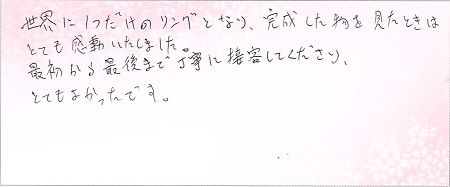 世界に1つだけのリングとなり、完成した物を見たときは
とても感動いたしました。
最初から最後まで丁寧に接客してくださり、
とてもよかったです。